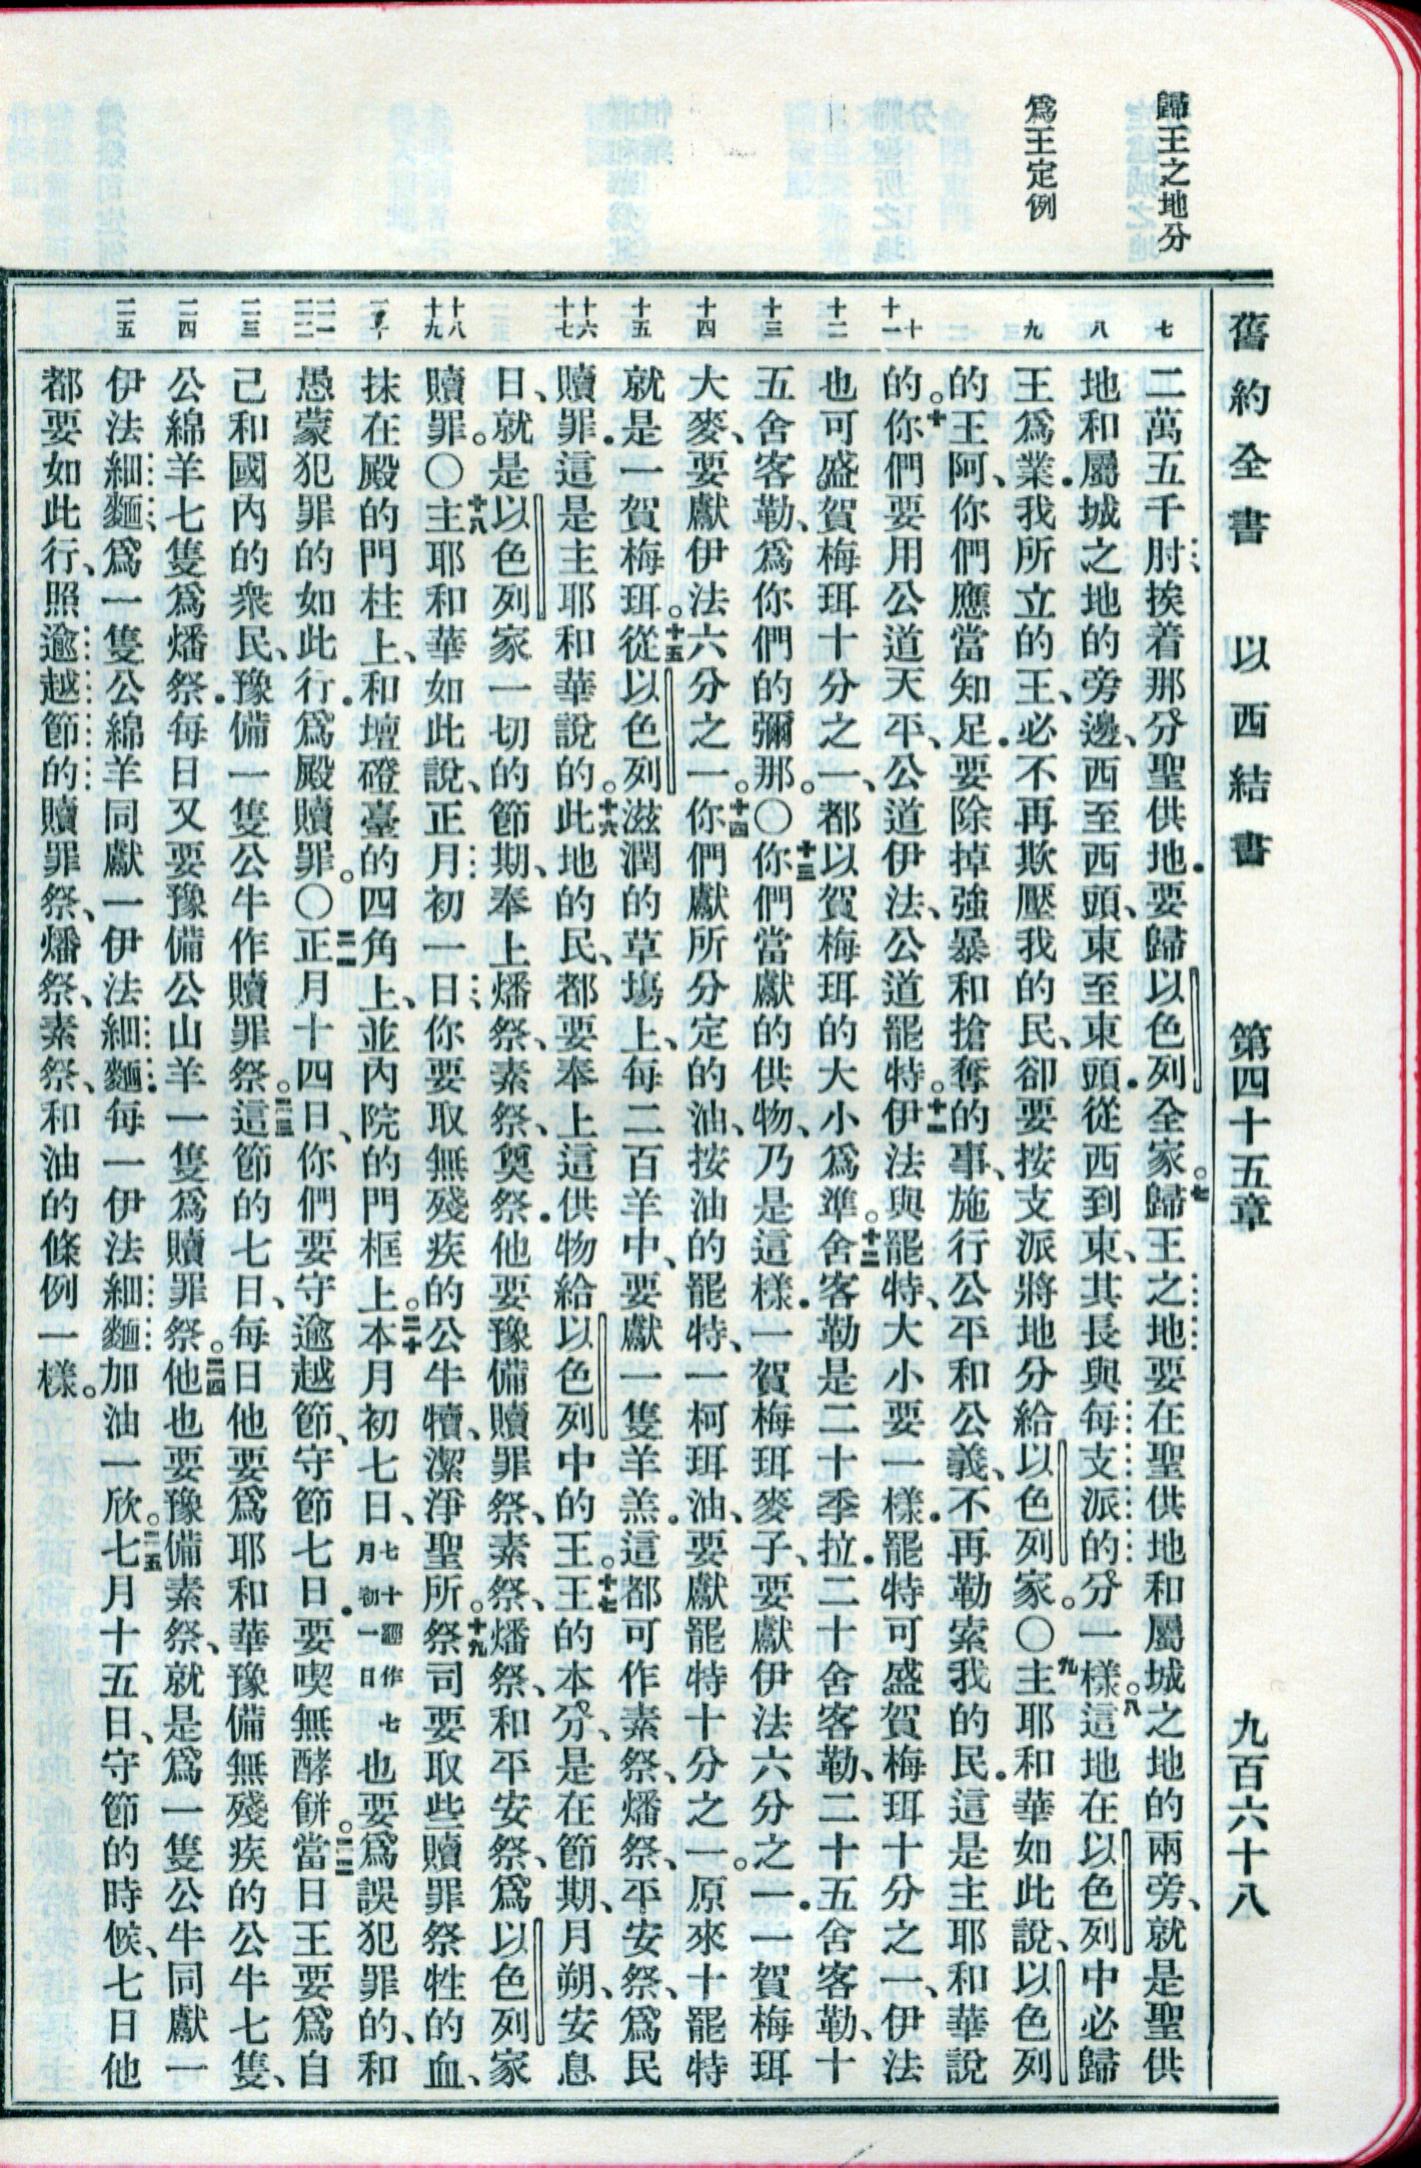 歸王之地分
爲王定例
舊約全書　以西結書　第四十五章　九百六十八
七
八
九
十
十一
十二
十三
十四
十五
十六
十七
十八
十九
二十
二一
二二
二三
二四
二五
二萬五千肘挨着那分聖供地．要歸以色列全家。七歸王之地要在聖供地和屬城之地的兩旁、就是聖供
地和屬城之地的旁邊、西至西頭、東至東頭．從西到東、其長與每支派的分一樣。八這地在以色列中必歸
王爲業．我所立的王、必不再欺壓我的民、卻要按支派將地分給以色列家。〇九主耶和華如此說、以色列
的王阿、你們應當知足．要除掉強暴和搶奪的事、施行公平和公義、不再勒索我的民．這是主耶和華說
的。十你們要用公道天平、公道伊法、公道罷特。十一伊法與罷特、大小要一樣．罷特可盛賀梅珥十分之一、伊法
也可盛賀梅珥十分之一、都以賀梅珥的大小爲準。十二舍客勒是二十季拉．二十舍客勒、二十五舍客勒、十
五舍客勒、爲你們的彌那。〇十三你們當獻的供物、乃是這樣．一賀梅珥麥子、要獻伊法六分之一．一賀梅珥
大麥、要獻伊法六分之一。十四你們獻所分定的油、按油的罷特、一柯珥油、要獻罷特十分之一。原來十罷特
就是一賀梅珥。十五從以色列滋潤的草場上、每二百羊中、要獻一隻羊羔．這都可作素祭、燔祭、平安祭、爲民
贖罪．這是主耶和華說的。十六此地的民、都要奉上這供物給以色列中的王。十七王的本分、是在節期、月朔、安息
日、就是以色列家一切的節期、奉上燔祭、素祭、奠祭．他要豫備贖罪祭、素祭、燔祭、和平安祭、爲以色列家
贖罪。〇十八主耶和華如此說、正月初一日、你要取無殘疾的公牛犢、潔淨聖所。十九祭司要取些贖罪祭牲的血、
抹在殿的門柱上、和壇磴臺的四角上、並內院的門框上。二十本月初七日、七十經作七月初一日也要爲誤犯罪的、和
愚蒙犯罪的如此行．爲殿贖罪。〇二一正月十四日、你們要守逾越節、守節七日．要喫無酵餅。二二當日王要爲自
己和國內的衆民、豫備一隻公牛作贖罪祭。二三這節的七日、每日他要爲耶和華豫備無殘疾的公牛七隻、
公綿羊七隻爲燔祭．每日又要豫備公山羊一隻爲贖罪祭。二四他也要豫備素祭、就是爲一隻公牛同獻一
伊法細麵、爲一隻公綿羊同獻一伊法細麵．每一伊法細麵加油一欣。二五七月十五日、守節的時候、七日他
都要如此行、照逾越節的贖罪祭、燔祭、素祭、和油的條例一樣。